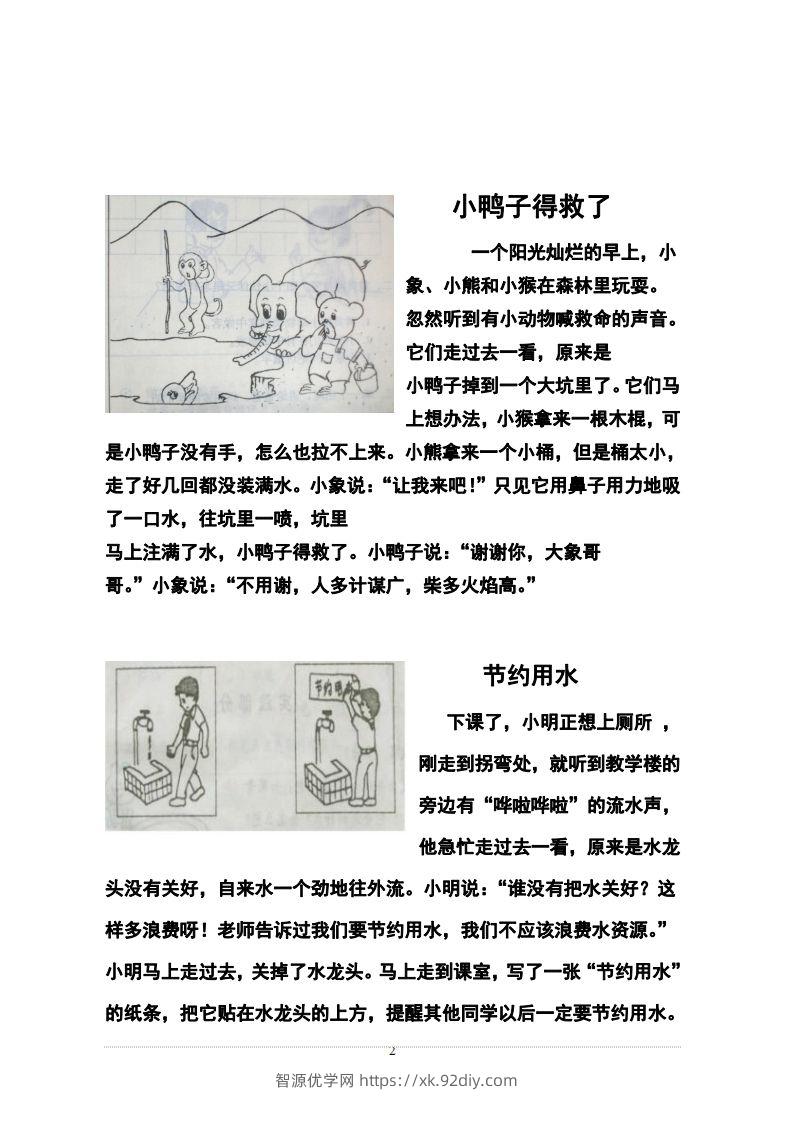 小鸭子得救了
一个阳光灿烂的早上，小
象、小熊和小猴在森林里玩耍。
忽然听到有小动物喊救命的声音。
它们走过去一看，原来是
小鸭子掉到一个大坑里了。它们马
上想办法，小猴拿来一根木棍，可
是小鸭子没有手，怎么也拉不上来。小熊拿来一个小桶，但是桶太小，
走了好几回都没装满水。小象说：“让我来吧！”只见它用鼻子用力地吸
了一口水，往坑里一喷，坑里
马上注满了水，小鸭子得救了。小鸭子说：“谢谢你，大象哥
哥。”小象说：“不用谢，人多计谋广，柴多火焰高。”
节约用水
节约用水
下课了，小明正想上厕所 ，
刚走到拐弯处，就听到教学楼的
旁边有“哗啦哗啦”的流水声，
他急忙走过去一看，原来是水龙
头没有关好，自来水一个劲地往外流。小明说：“谁没有把水关好？这
样多浪费呀！老师告诉过我们要节约用水，我们不应该浪费水资源。”
小明马上走过去，关掉了水龙头。马上走到课室，写了一张“节约用水”
的纸条，把它贴在水龙头的上方，提醒其他同学以后一定要节约用水。
2
智源优学网 https://xk.92diy.com